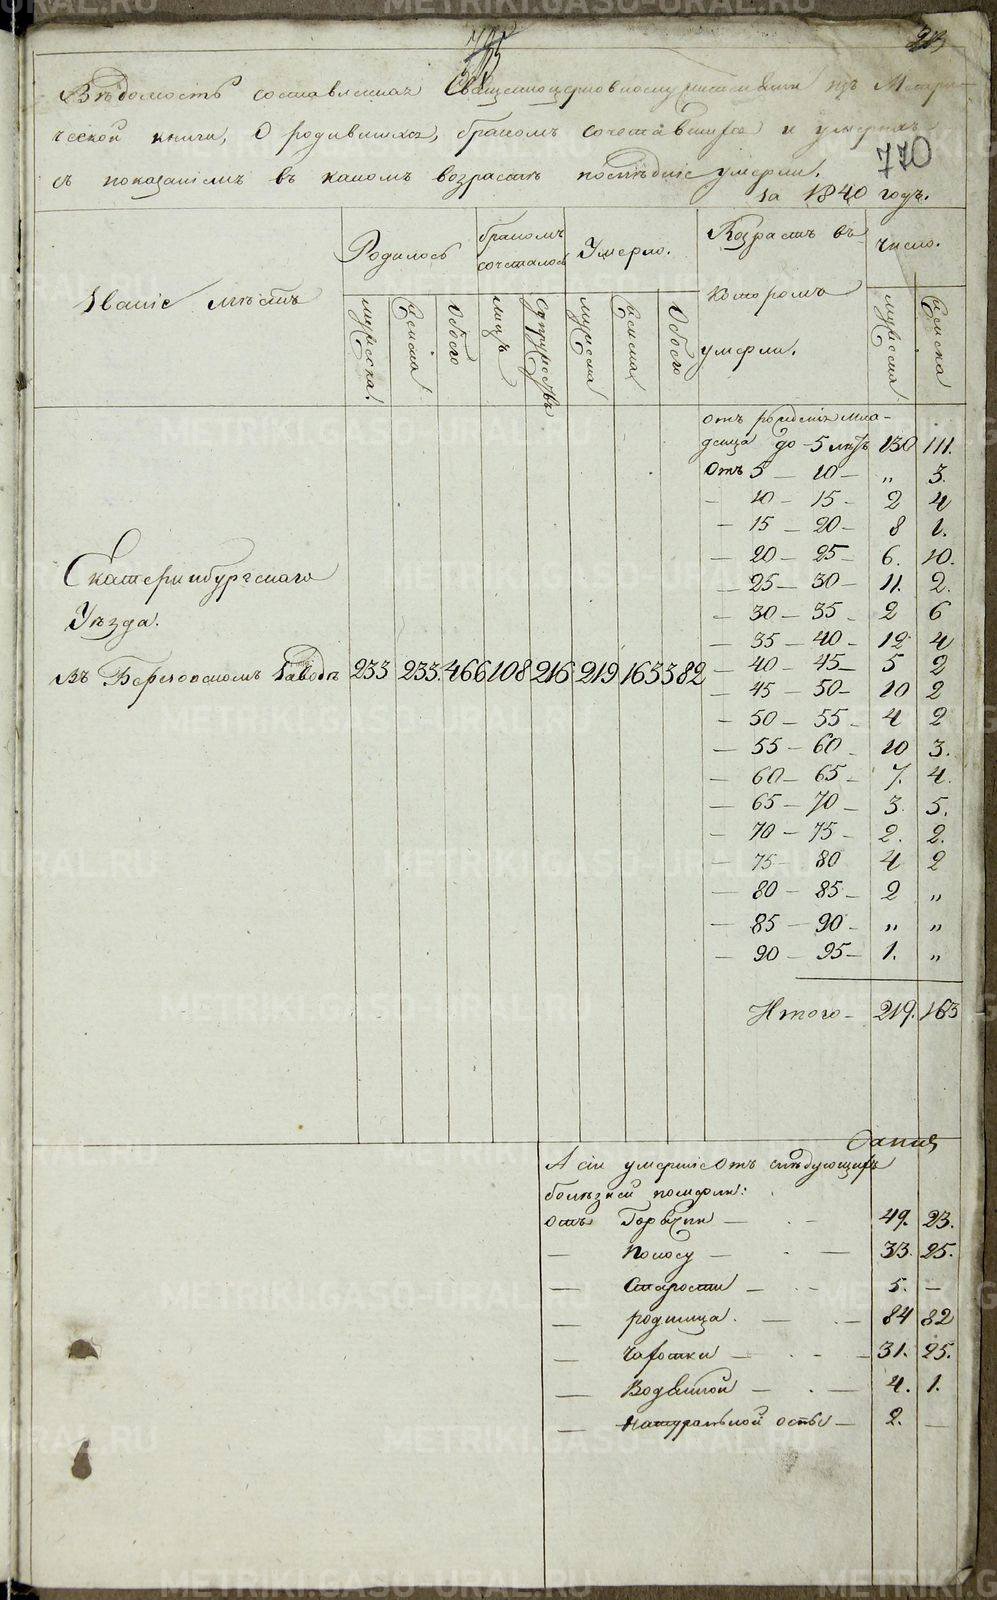 213
Вѣдомость составленная Священноцерковнослужителями изъ Метри-
ческой книги, О родившихся, бракомъ сочетавшихся и умершихъ
770
съ показаніемъ въ какомъ возрастѣ послѣдніе умерли.
за 1840 годъ.
Званіе мѣстъ
Родилось
мужеска.
женска
Обоего
бракомъ сочеталось
лицъ
Супружествъ
Умерло.
мужеска
женска
Обоего
Возрастъ въ
которомъ
умерли.
число.
мужеска
женска
отъ рожденія мла-
денца до 5 лѣтъ 130 111.
Отъ 5 — 10 — „ 3.
— 10 — 15 — 2 4
— 15 — 20 — 8 1.
— 20 — 25 — 6. 10.
— 25 — 30 — 11. 2.
— 30 — 35 — 2 6
— 35 — 40 — 12 4
— 40 — 45 — 5 2
— 45 — 50 — 10 2
— 50 — 55 — 4 2
— 55 — 60 — 10 3.
— 60 — 65 — 7. 4.
— 65 — 70 — 3. 5.
— 70 — 75 — 2. 2.
— 75 — 80 4 2
— 80 — 85 — 2 „
— 85 — 90 — „ „
— 90 — 95 — 1. „
Итого — 219. 163
Екатеринбургскаго
Уѣзда.
въ Березовскомъ Заводѣ 233 233. 466 108 216 219 163 382
А сіи умершіе Отъ слѣдующихъ
болѣзней померли:
отъ Горячки — 49. 23.
— Поносу — 33. 25.
— Старости — 5. —
— родимца. — 84 82
— Чахотки — 31. 25.
— Водяной — 4. 1.
— Натуральной оспы — 2. —
METRIKI.GASO-URAL.RU